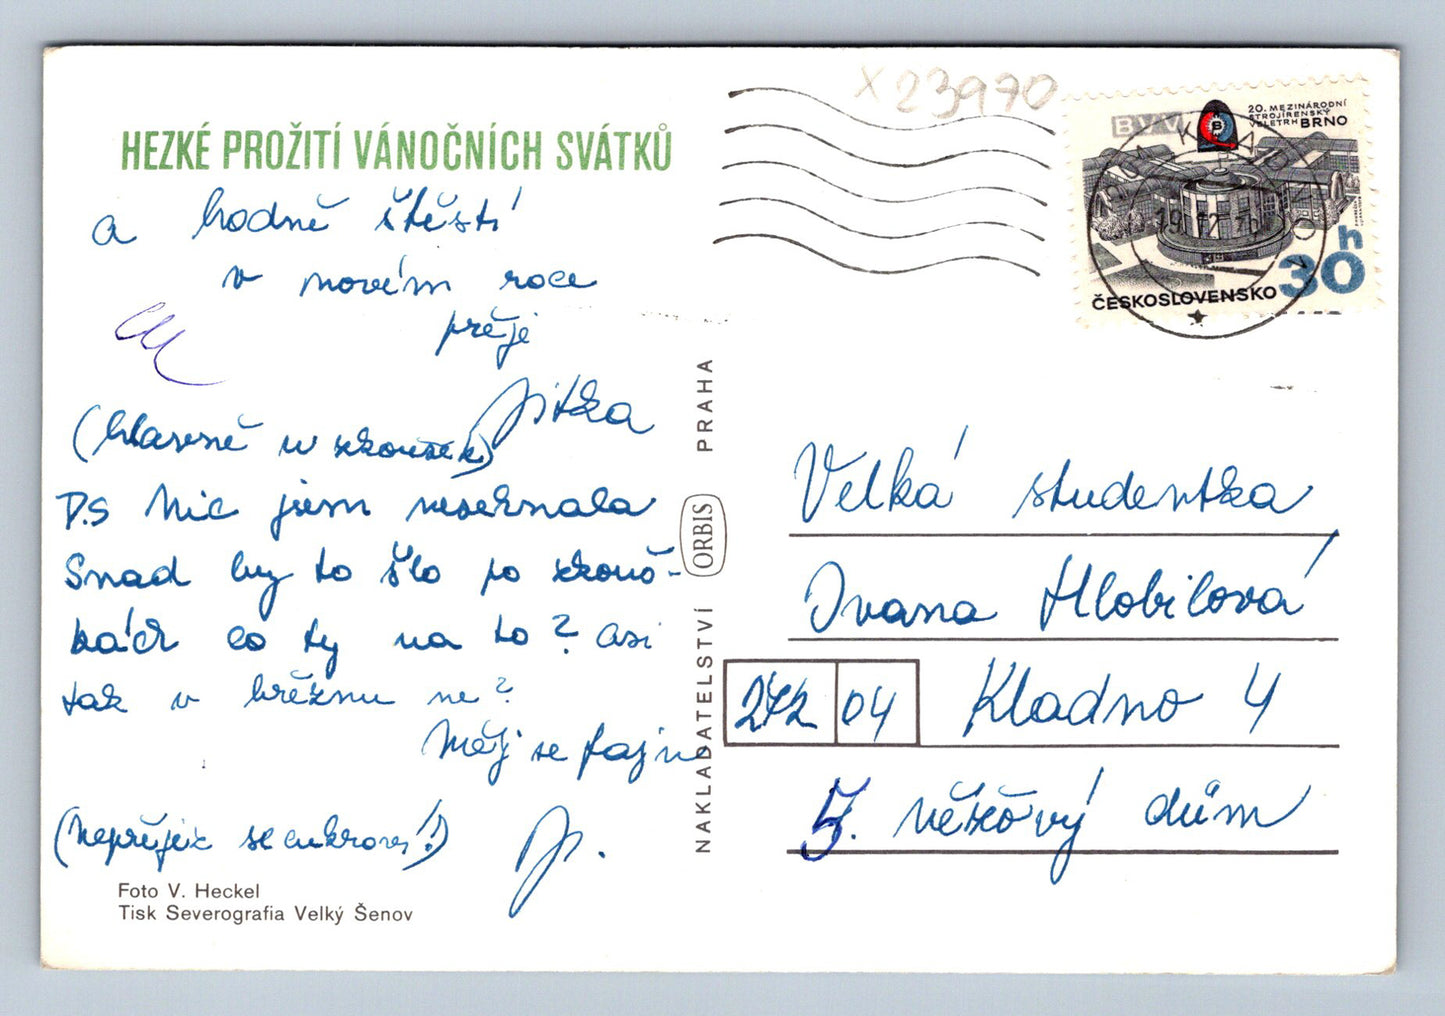 HEZKÉ PROŽITÍ VÁNOČNÍCH SVÁTKŮ
a hodně štěstí
v novém roce
přeji
Jitka
(hlavně u zkoušek)
P.S Nic jsem neseknala
Snad by to šlo po zkouš-
kách co ty na to? Asi
tak v březnu ne?
Měj se fajn
(Nepřejez se cukroví!)
J.
Foto V. Heckel
Tisk Severografia Velký Šenov
NAKLADATELSTVÍ ORBIS PRAHA
x 23970
BVV
B
20. MEZINÁRODNÍ
STROJÍRENSKÝ
VELETRH BRNO
30h
ČESKOSLOVENSKO
Velká studentka
Ivana Hlobilová
272 04 Kladno 4
5. věžový dům